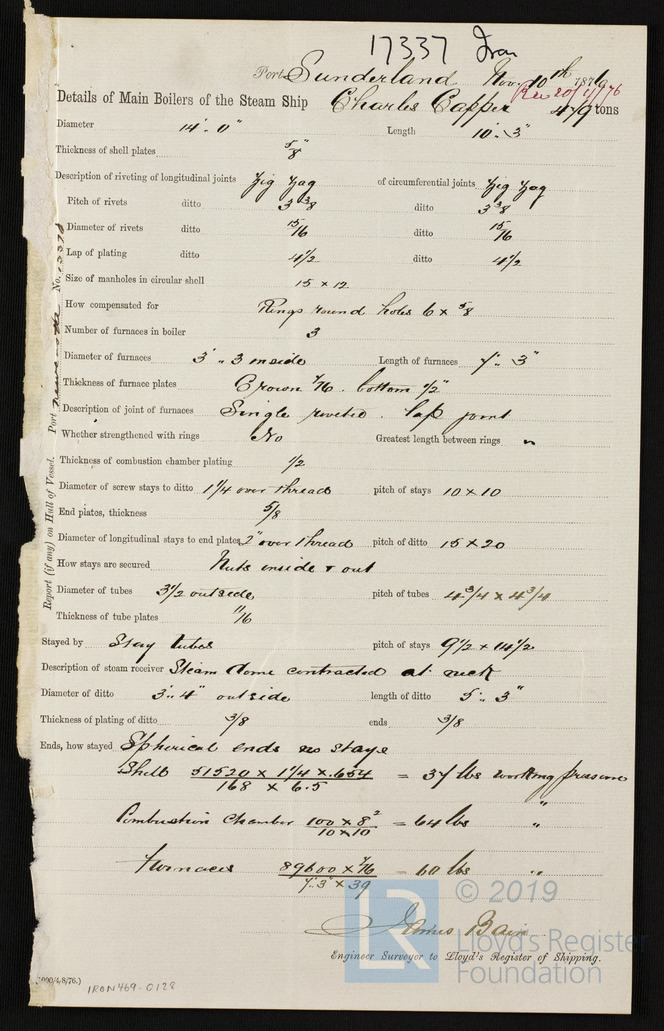 17337 Iron
Port Sunderland Nov. 10th 1876
Rec 20/11/76
Details of Main Boilers of the Steam Ship Charles Capper 479 tons
Diameter 14'. 0" Length 10'. 3"
Thickness of shell plates 5/8"
Description of riveting of longitudinal joints Zig Zag of circumferential joints Zig Zag
Pitch of rivets ditto 3 3/8 ditto 3 3/8
Diameter of rivets ditto 15/16 ditto 15/16
Lap of plating ditto 4 1/2 ditto 4 1/2
Size of manholes in circular shell 15 x 12
How compensated for Rings round holes 6 x 5/8
Number of furnaces in boiler 3
Diameter of furnaces 3' .. 3 inside Length of furnaces 7'. 3"
Thickness of furnace plates Crown 7/16. bottom 1/2"
Description of joint of furnaces Single riveted. lap joint
Whether strengthened with rings No Greatest length between rings "
Thickness of combustion chamber plating 1/2
Diameter of screw stays to ditto 1 1/4 over thread pitch of stays 10 x 10
End plates, thickness 5/8
Diameter of longitudinal stays to end plates 2" over thread pitch of ditto 15 x 20
How stays are secured Nuts inside & out
Diameter of tubes 3 1/2 outside pitch of tubes 4 3/4 x 4 3/4
Thickness of tube plates 11/16
Stayed by Stay tubes pitch of stays 9 1/2 x 14 1/2
Description of steam receiver Steam dome contracted at neck
Diameter of ditto 3'. 4" outside length of ditto 5'. 3"
Thickness of plating of ditto 3/8 ends 3/8
Ends, how stayed Spherical ends no stays
Shell 51520 x 1 1/4 x .654 = 37 lbs working pressure
168 x 6.5
Combustion Chamber 100 x 8² = 64 lbs "
10 x 10
Furnaces 89600 x 7/16 = 60 lbs "
7'.3" x 39
James Bain
Engineer Surveyor to Lloyd's Register of Shipping.
Report (if any) on Hull of Vessel. Port No.
IRON469-0128
LR © 2019
Lloyd's Register
Foundation